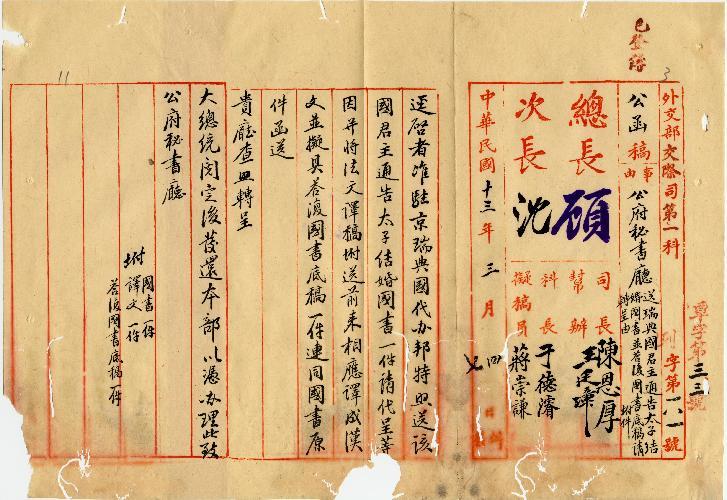 已登錄
3
11
章字第三三號
列字第一八一號
外交部交際司第一科
公函稿
事由
公府秘書廳
送瑞典國君主通告太子結
婚國書並荅復國書底稿請
轉呈由
附件
總長
顧
次長
沈
司長
陳恩厚
幫辦
科長
于德濬
擬稿員
蔣崇謙
中華民國十三年三月
四
日
逕啓者准駐京瑞典國代办邦特㽞送該
國君主通告太子結婚國書一件請代呈等
因并將法文譯稿坿送前来相應譯成漢
文並擬具荅復國書底稿一件連同國書原
件函送
貴廳查照轉呈
大總統閱定後發還本部以憑办理此致
公府秘書廳
坿
國書一件
譯文一件
荅復國書底稿一件